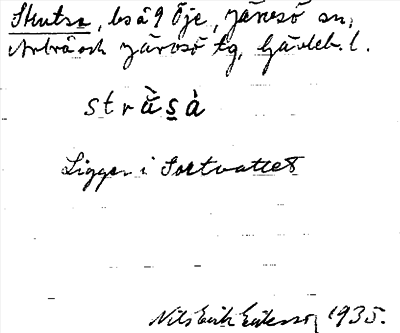 Strutsa, bs å 9 Öje, Järvsö sn,
Arbrå och Järvsö tg, Gävleb. l.
strùsà
Ligger i Sortvattet
Nils Erik Eriksson 1935.